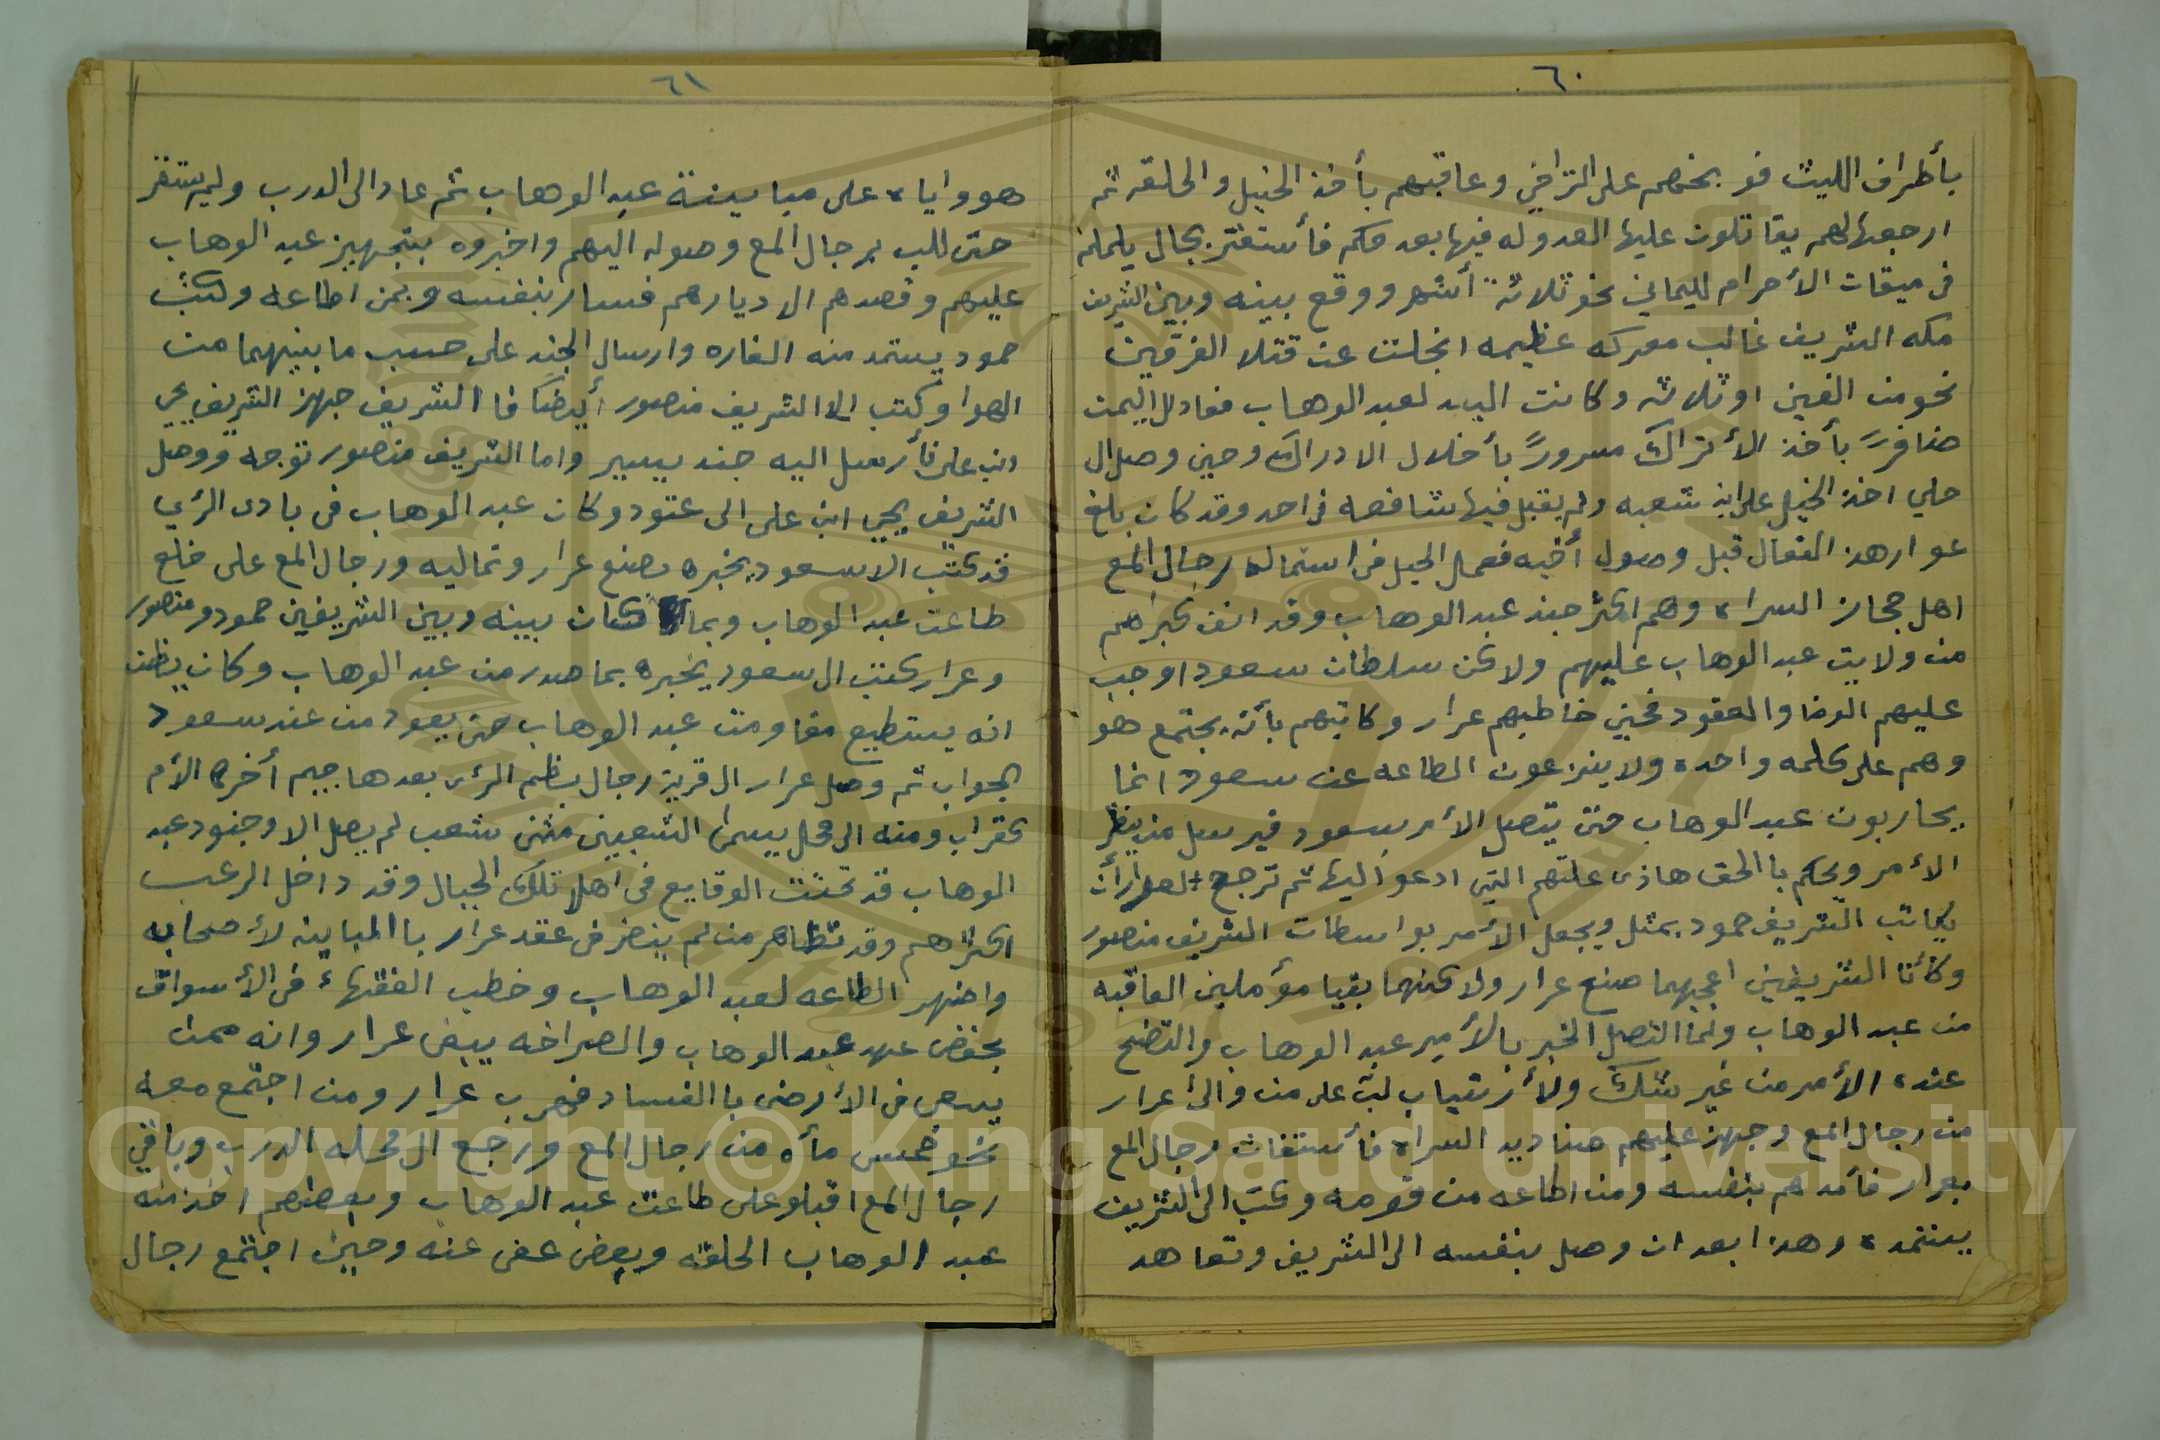 ٦٠
بأطراف الليث فوبخهم على التراخي وعاقبهم بأخذ الخيل والحلقه ثم
ارجعها لهم يقاتلون عليها العدو له فيها بعد مكه فأستقر بحال يلملم
في ميقات الأحرام لليماني نحو ثلاثة أشهر ووقع بينه وبين الشريف
مكه الشريف غالب معركه عظيمه انجلت عن قتلا الفرقين
نحو من الفين او ثلاثه وكانت اليد لعبد الوهاب فعاد الى اليمن
ضافرً بأخذ الأتراك مسرورً بأخلال الادراك وحين وصل ال
حلي اخذ الخيل على ابن شعبه ولم يقبل فيها شافعه في احد وقد كان بلغ
عرار هذ الفعال قبل وصول أخيه فعمل الحيل في استماله رجال المع
اهل حجاز السراه وهم اكثر جند عبد الوهاب وقد انف كبراهم
من ولايت عبد الوهاب عليهم ولاكن سلطان سعود اوجب
عليهم الوفا والعقود فحين خاطبهم عرار وكاتبهم بأنه يجتمع هو
وهم على كلمه واحده ولا ينزعون الطاعه عن سعود انما
يحاربون عبد الوهاب حتى يتصل الأمر بسعود فيرسل من ينظر
الأمر ويحكم با الحق هاذى علتهم التي ادعو اليها ثم ترجح لعرار أن
يكاتب الشريف حمود بمثل ويجعل الأمر بواسطات الشريف منصور
وكأنا الشريفين اعجبهما صنع عرار ولاكنهما بقيا مؤملين العاقبه
من عبد الوهاب ولما التصل الخبر بالأمير عبد الوهاب والتضح
عنده الأمر من غير شك ولأ أرتياب لبث على من والى عرار
من رجال المع وجهز عليهم صناديد السراه فأستغاث رجال المع
بعرار فأمدهم بنفسه ومن اطاعه من قومه وكتب الى الشريف
يستمده وهذا بعد ان وصل بنفسه الى الشريف وتعاهد
٦١
هو واياه على مباينة عبد الوهاب ثم عاد الى الدرب ولم يستقر
حتى للب برجال المع وصوله اليهم واخبروه بتجهيز عبد الوهاب
عليهم وقصدهم الا ديارهم فسار بنفسه وبمن اطاعه وكتب
حمود يستمد منه الغاره وارسال الجند على حسب ما بينهما من
الهوا وكتب الا الشريف منصور أيضاً فا الشريف جهز الشريف يحي
ابن على فأرسل اليه جند يسير واما الشريف منصور توجه ووصل
الشريف يحيى ابن على الى عتود وكان عبد الوهاب في بادى الرئي
قد كتب الا سعود يخبره بصنع عرار وتماليه ورجال المع على خلع
طاعت عبد الوهاب وبما كان بينه وبين الشريفين حمود ومنصور
وعرار كتب ال سعود يخبره بما صدر من عبد الوهاب وكان يظن
انه يستطيع مقاومت عبد الوهاب حتى يعود من عند سعود
الجواب ثم وصل عرار ال قرية رجال بظم الرئ بعدها جيم أخرها الأم
كغراب ومنه الى محل يسمى الشعبين مثنى شعب لم يصل الا وجنود عبد
الوهاب قد تحثثت الوقايع في اهل تلك الجبال وقد داخل الرعب
اكثرهم وقد تظاهر من لم ينضر في عقد عرار با المباينه لأصحابه
واضهر الطاعه لعبد الوهاب وخطب الفقهاء في الأسواق
بحفض عهد عبد الوهاب والصراخه ببغض عرار وانه ممن
يسعى في الأرض با الفساد فهرب عرار ومن اجتمع معه
نحو خمس مأه من رجال المع ورجع ال محله الدرب وباقي
رجال المع اقبلو على طاعت عبد الوهاب وبعضهم اخذ منه
عبد الوهاب الحلقه وبعض عفى عنه وحين اجتمع رجال
Copyright © King Saud University